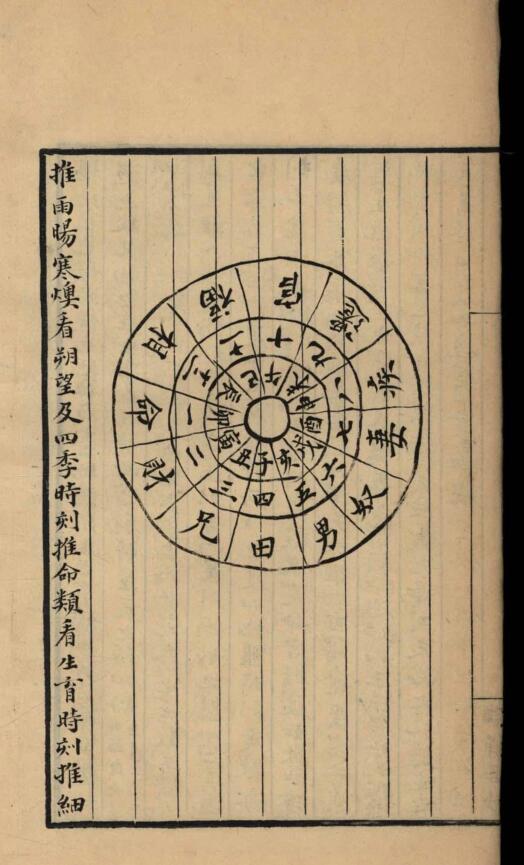 命 兄 田 男 奴 妻 疾 遷 官 福 相
一 二 三 四 五 六 七 八 九 十 十一 十二
子 丑 寅 卯 辰 巳 午 未 申 酉 戌 亥
推雨暘寒燠看朔望及四季時刻推命類看生育時刻推細